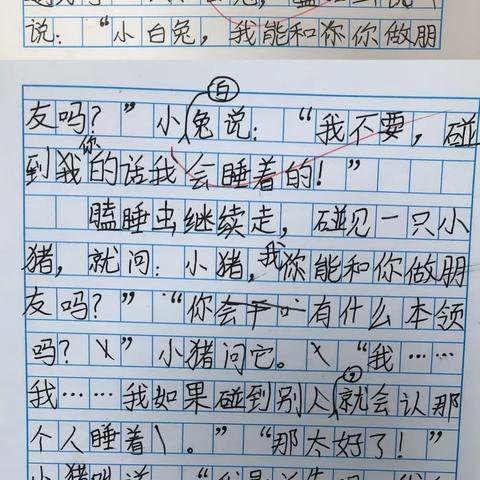 说：“小白兔，我能和你你做朋
友吗？”小白兔说：“我不要，碰
到我你的话我会睡着的！”
瞌睡虫继续走，碰见一只小
猪，就问：小猪，我你能和你做朋
友吗？”“你会有什么本领
吗？”小猪问它。“我……
我……我如果碰到别人，就会认那
个人睡着。”“那太好了！”